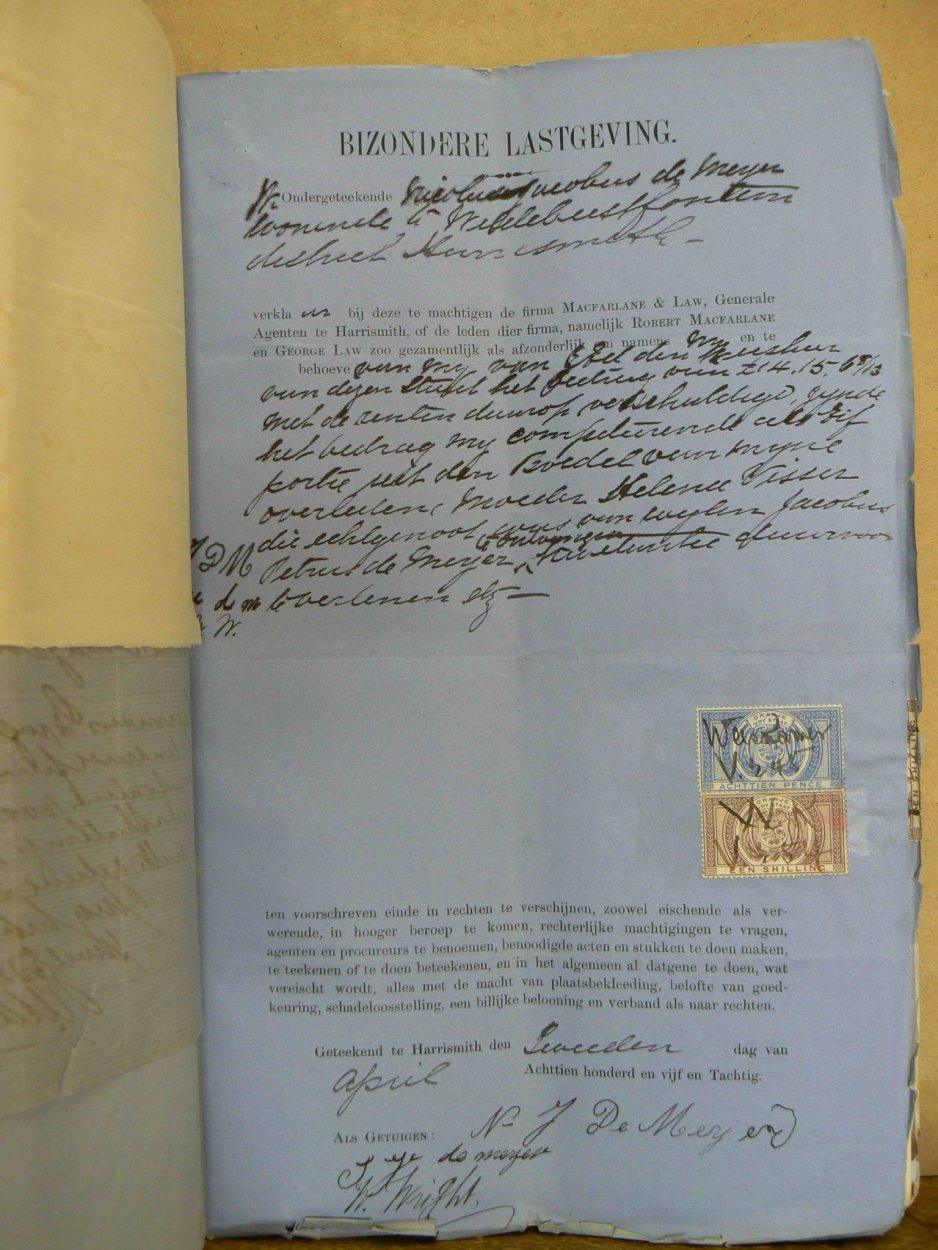 BIZONDERE LASTGEVING.
Ondergeteekende Nicolaas Jacobus de Meyer
wonende te Wildebeestfontein
district Harrismith –
verkla bij deze te machtigen de firma MACFARLANE & LAW, Generale
Agenten te Harrismith, of de leden dier firma, namelijk ROBERT MACFARLANE
en GEORGE LAW zoo gezamentlijk als afzonderlijk om namens my en te
behoeve van my van Edel den Weesheer
van dezen Staat het bedrag van £14.15.6
met de renten daarop verschuldigd, zynde
het bedrag my competerende als erf
portie uit den Boedel van myne
overleden Moeder Helena Visser
die echtgenoot was van wylen Jacobus
Petrus de Meyer, te ontvangen kwitantie daarvoor
te verlenen etz –
J D M
d m
W.
ORANJE VRY STAAT
ACHTTIEN PENCE
ORANJE VRY STAAT
EEN SHILLING
ten voorschreven einde in rechten te verschijnen, zoowel eischende als ver-
werende, in hooger beroep te komen, rechterlijke machtigingen te vragen,
agenten en procureurs te benoemen, benoodigde acten en stukken te doen maken,
te teekenen of te doen beteekenen, en in het algemeen al datgene te doen, wat
vereischt wordt, alles met de macht van plaatsbekleeding, belofte van goed-
keuring, schadeloosstelling, een billijke belooning en verband als naar rechten.
Geteekend te Harrismith den Tweeden dag van
April Achttien honderd en vijf en Tachtig.
ALS GETUIGEN: N J De Meyer
de meyer
W. Wright.